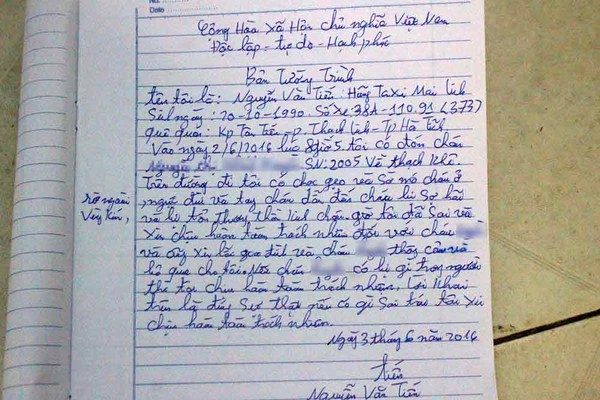 No.
Date
Cộng Hòa Xã Hội chủ nghĩa Việt Nam
Độc lập - tự do - Hạnh phúc
Bản Tường Trình
tên tôi là: Nguyễn Văn Tiến Hãng Taxi Mai Linh
Sinh ngày: 20-10-1990 Số xe: 38A-110.91 (373)
quê quán: Kp Tân Tiến - p. Thạch Linh - Tp Hà Tĩnh
Vào ngày 2/6/2016 lúc 8 giờ 5. tôi có đón cháu
Nguyễn Th SN: 2005 Về thạch Khê.
Trên đường đi tôi có chọc ghẹo và Sờ mó cháu ở
ngực đùi và tay chân dẫn đến cháu bị Sợ hãi
và bị tổn thương thần kinh giờ tôi đã Sai và
Xin chịu hoàn toàn trách nhiệm đối với cháu
và cũng xin lỗi gia đình và cháu thông cảm và
bỏ qua cho tôi. Nếu cháu có bị gì trong người
thì tôi chịu hoàn toàn trách nhiệm, lời khai
trên là đúng Sự thật nếu có gì Sai trái tôi xin
chịu hoàn toàn trách nhiệm.
Ngày 3 tháng 6 năm 2016
Tiến
Nguyễn Văn Tiến